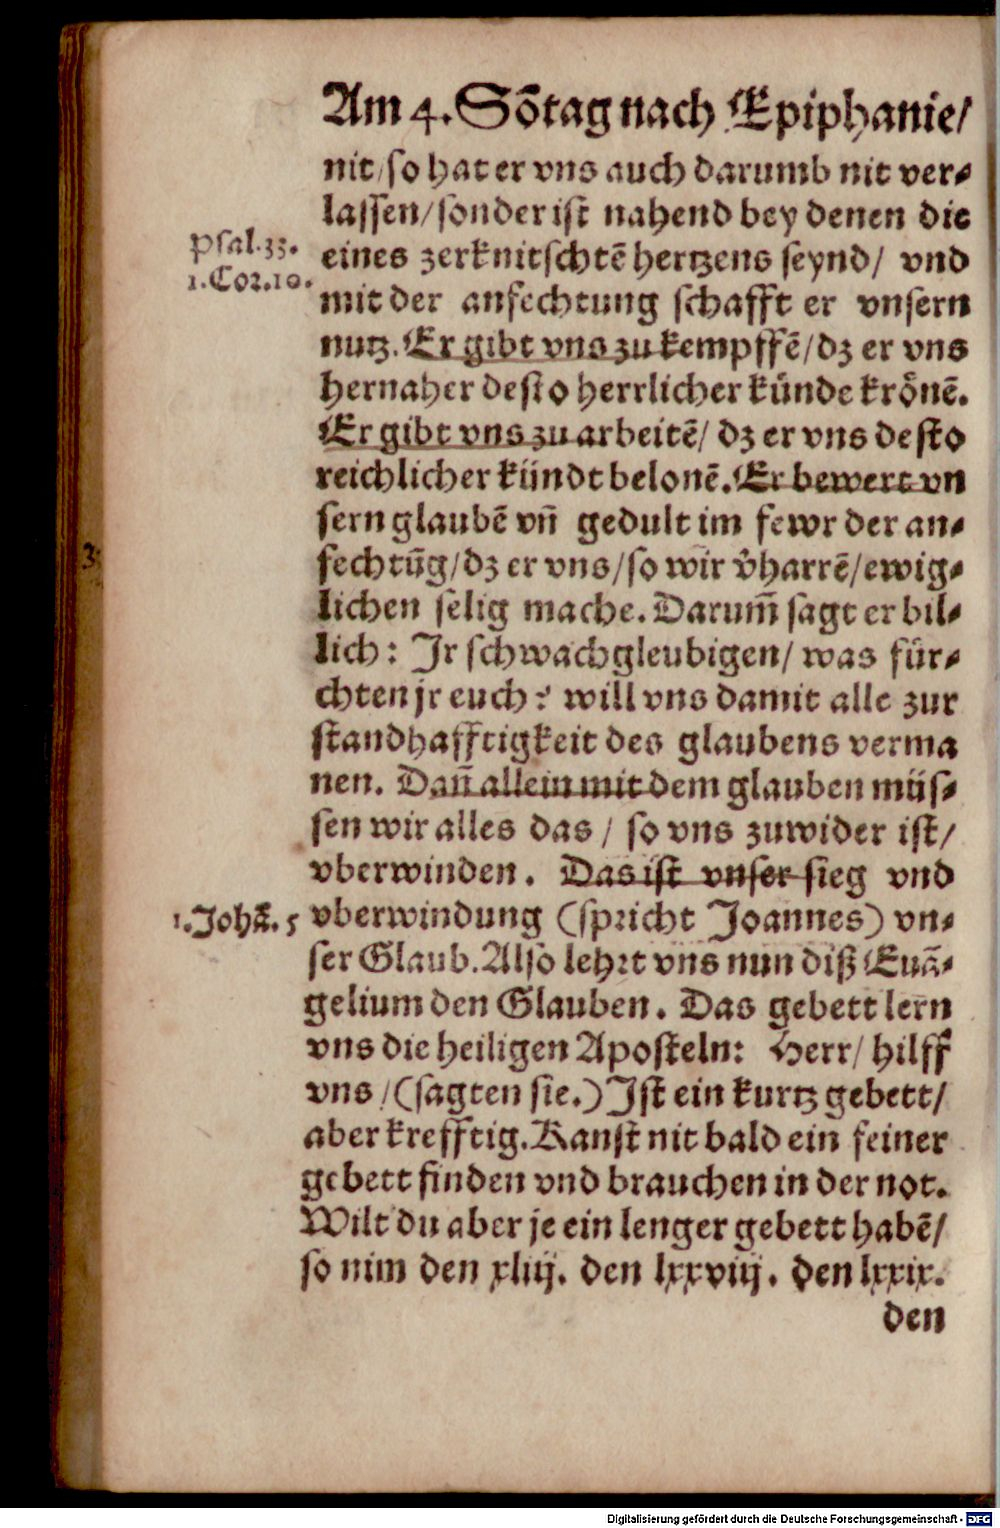 Am 4. Sōtag nach Epiphanie/
nit/so hat er vns auch darumb nit ver-
lassen/sonder ist nahend bey denen die
Psal.33.
eines zerknitschtē hertzens seynd/ vnd
1.Cor.10.
mit der anfechtung schafft er vnsern
nutz. Er gibt vns zu kempffē/dz er vns
hernaher desto herrlicher künde krönē.
Er gibt vns zu arbeitē/ dz er vns desto
reichlicher kündt belonē. Er bewert vn
sern glaubē vn̄ gedult im fewr der an-
fechtūg/dz er vns/so wir v̄harrē/ewig-
lichen selig mache. Darum̄ sagt er bil-
lich: Jr schwachgleubigen/ was für-
chten jr euch? will vns damit alle zur
standhafftigkeit des glaubens verma
nen. Dan̄ allein mit dem glauben müs-
sen wir alles das/ so vns zuwider ist/
vberwinden. Das ist vnser sieg vnd
1.Johā. 5
vberwindung (spricht Joannes) vn-
ser Glaub. Also lehrt vns nun diß Euā-
gelium den Glauben. Das gebett lern
vns die heiligen Aposteln: Herr/ hilff
vns/(sagten sie.) Jst ein kurtz gebett/
aber krefftig. Kanst nit bald ein feiner
gebett finden vnd brauchen in der not.
Wilt du aber je ein lenger gebett habē/
so nim den xliij. den lxxviij. den lxxix.
den
Digitalisierung gefördert durch die Deutsche Forschungsgemeinschaft - DFG